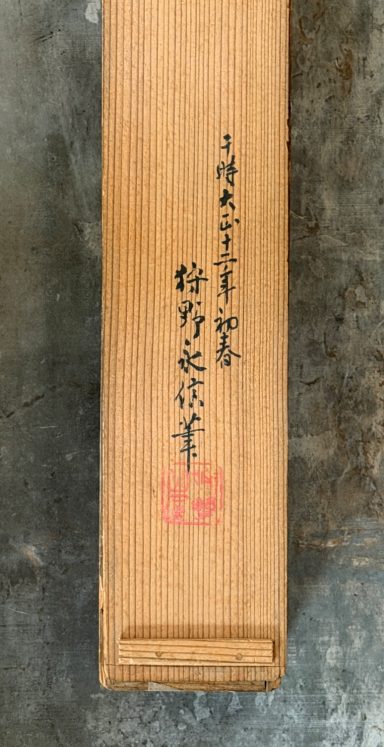 于時大正十二年初春
狩野永信筆